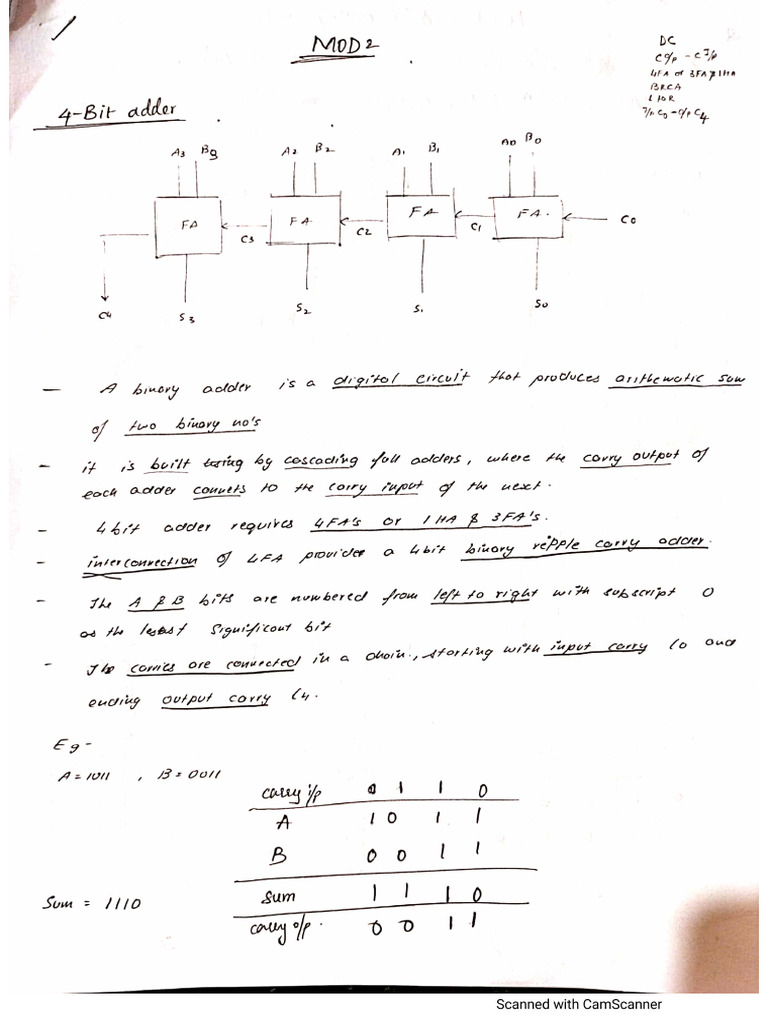 MOD2
DC
C o/p - C i/p
4FA or 3FA & 1HA
BRCA
L to R
i/p C0 - o/p C4
4-Bit adder
A3 B3 A2 B2 A1 B1 A0 B0
FA FA FA FA. C0
C3 C2 C1
C4 S3 S2 S1 S0
— A binary adder is a digital circuit that produces arithematic sum
of two binary no's
- it is built by cascading full adders, where the carry output of
each adder connets to the carry input of the next.
- 4bit adder requires 4FA's or 1HA & 3FA's.
- interconnection of 4FA provides a 4bit binary ripple carry adder.
- The A & B bits are numbered from left to right with subscript 0
as the least significant bit
- The carries are connected in a chain., starting with input carry C0 and
ending output carry C4.
Eg -
A = 1011 , B = 0011
carry i/p 0 1 1 0
A 1 0 1 1
B 0 0 1 1
Sum = 1110
sum 1 1 1 0
carry o/p. 0 0 1 1
Scanned with CamScanner